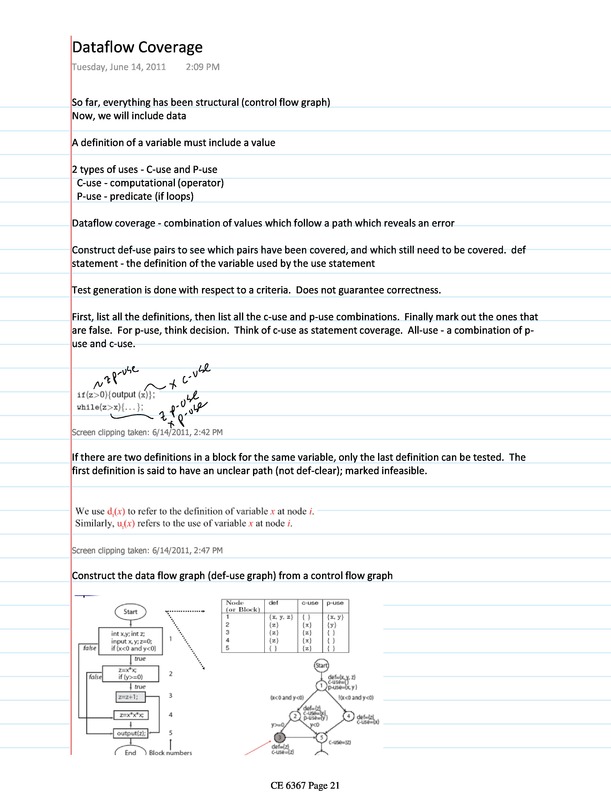 Dataflow Coverage
Tuesday, June 14, 2011 2:09 PM
So far, everything has been structural (control flow graph)
Now, we will include data
A definition of a variable must include a value
2 types of uses - C-use and P-use
C-use - computational (operator)
P-use - predicate (if loops)
Dataflow coverage - combination of values which follow a path which reveals an error
Construct def-use pairs to see which pairs have been covered, and which still need to be covered. def
statement - the definition of the variable used by the use statement
Test generation is done with respect to a criteria. Does not guarantee correctness.
First, list all the definitions, then list all the c-use and p-use combinations. Finally mark out the ones that
are false. For p-use, think decision. Think of c-use as statement coverage. All-use - a combination of p-
use and c-use.
z p-use
x c-use
if(z>0){output (x)};
z p-use
while(z>x){...};
x p-use
Screen clipping taken: 6/14/2011, 2:42 PM
If there are two definitions in a block for the same variable, only the last definition can be tested. The
first definition is said to have an unclear path (not def-clear); marked infeasible.
We use di(x) to refer to the definition of variable x at node i.
Similarly, ui(x) refers to the use of variable x at node i.
Screen clipping taken: 6/14/2011, 2:47 PM
Construct the data flow graph (def-use graph) from a control flow graph
Start
int x,y; int z;
input x, y; z=0;
if (x<0 and y<0)
1
false
true
z=x*x;
if (y>=0)
2
false
true
z=z+1;
3
z=x*x*x;
4
output(z);
5
End
Block numbers
Node (or Block) def c-use p-use
1 {x, y, z} { } {x, y}
2 {z} {x} {y}
3 {z} {z} { }
4 {z} {x} { }
5 { } {z} { }
Start
def={x, y, z}
c-use={}
p-use={x, y}
1
(x<0 and y<0)
!(x<0 and y<0)
def={z}
c-use={x}
p-use={y}
2
4
def={z}
c-use={x}
y>=0
y<0
3
5
c-use={z}
def={z}
c-use={z}
CE 6367 Page 21